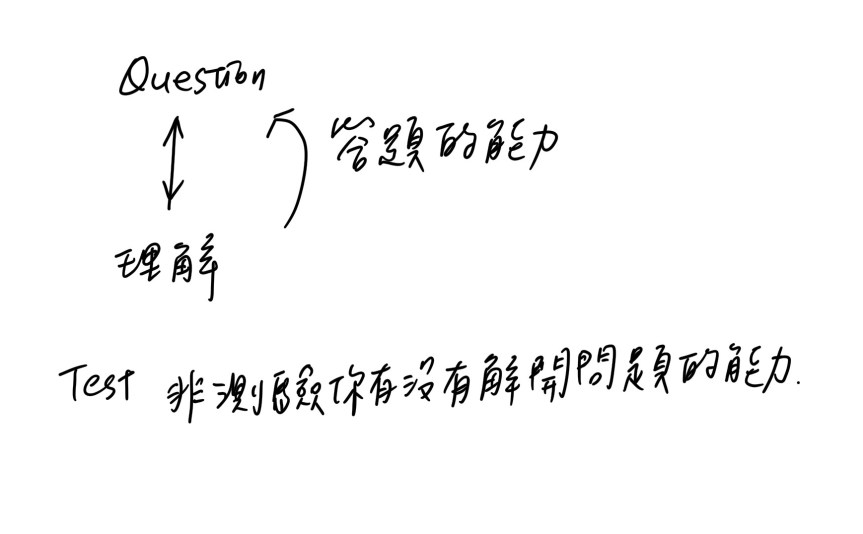 Question
答題的能力
理解
Test 非測驗你有沒有解開問題的能力.